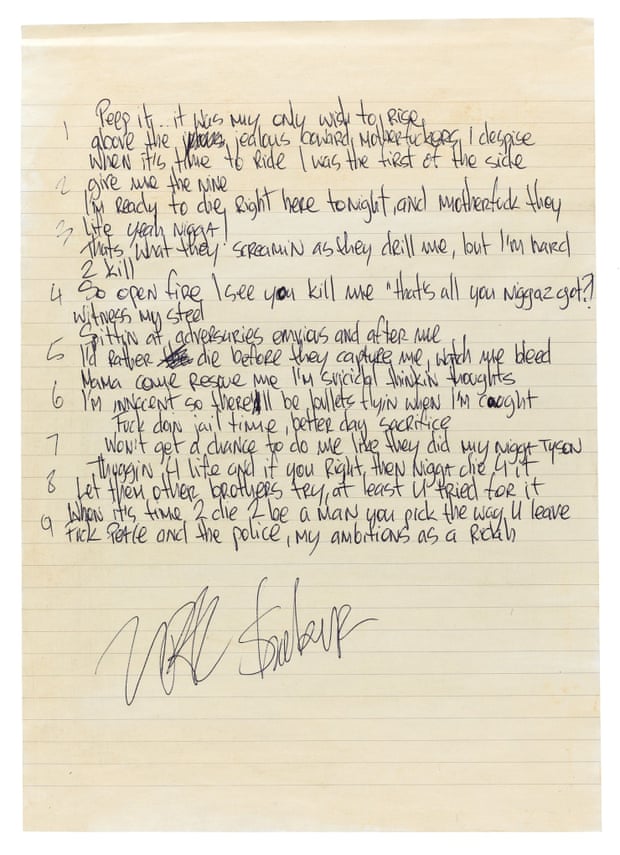 Peep it... it was my only wish to rise
1 above the jealous coward motherfuckers I despise
When it's time to ride I was the first of the side
2 give me the nine
I'm ready to die right here tonight, and motherfuck they
3 life yeah nigga!
thats what they screamin as they drill me, but I'm hard
2 kill
4 So open fire I see you kill me "that's all you niggaz got?
witness my steel
Spittin at adversaries envious and after me
5 I'd rather die before they capture me, watch me bleed
Mama come rescue me I'm suicidal thinkin thoughts
6 I'm innocent so there'll be bullets flyin when I'm caught
Fuck doin jail time, better day sacrifice
7 Won't get a chance to do me like they did my nigga Tyson
Thuggin 4 life and if you right, then nigga die 4 it
8 Let them other brothers try, at least U tried for it
When it's time 2 die 2 be a man you pick the way U leave
9 Fuck peace and the police, my ambitions as a Ridah